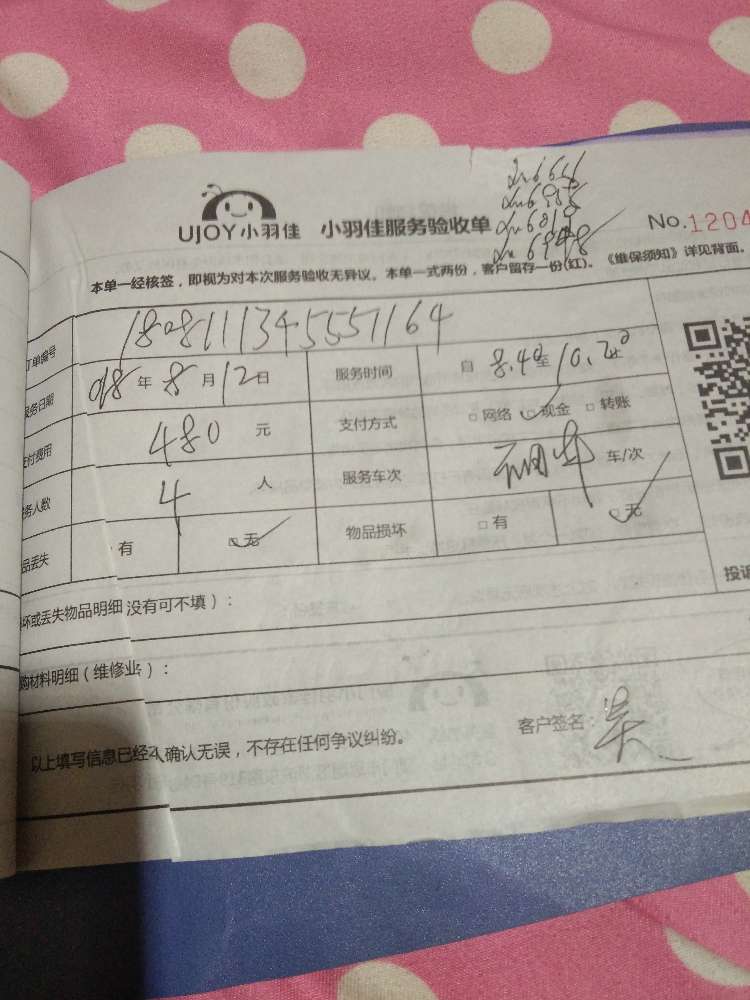 UJOY小羽佳 小羽佳服务验收单 No.1204
本单一经核签，即视为对本次服务验收无异议。本单一式两份，客户留存一份(红)。《维保须知》详见背面。
订单编号 1808111345551164
服务日期 年 8 月 12 日 服务时间 自 8.40 至 10.20
支付费用 480 元 支付方式 □网络 □现金 □转账
服务人数 4 人 服务车次 车/次
品丢失 有 □无 物品损坏 □有 □无
坏或丢失物品明细 没有可不填）：
购材料明细（维修业）：
以上填写信息已经 确认无误，不存在任何争议纠纷。 客户签名：
投诉